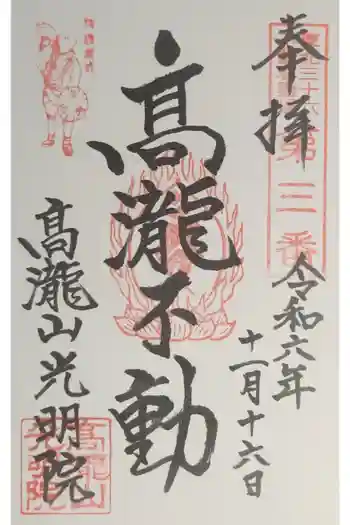 奉拝
第三番
令和六年
十一月十六日
髙瀧不動
髙瀧山光明院
髙瀧山光明院